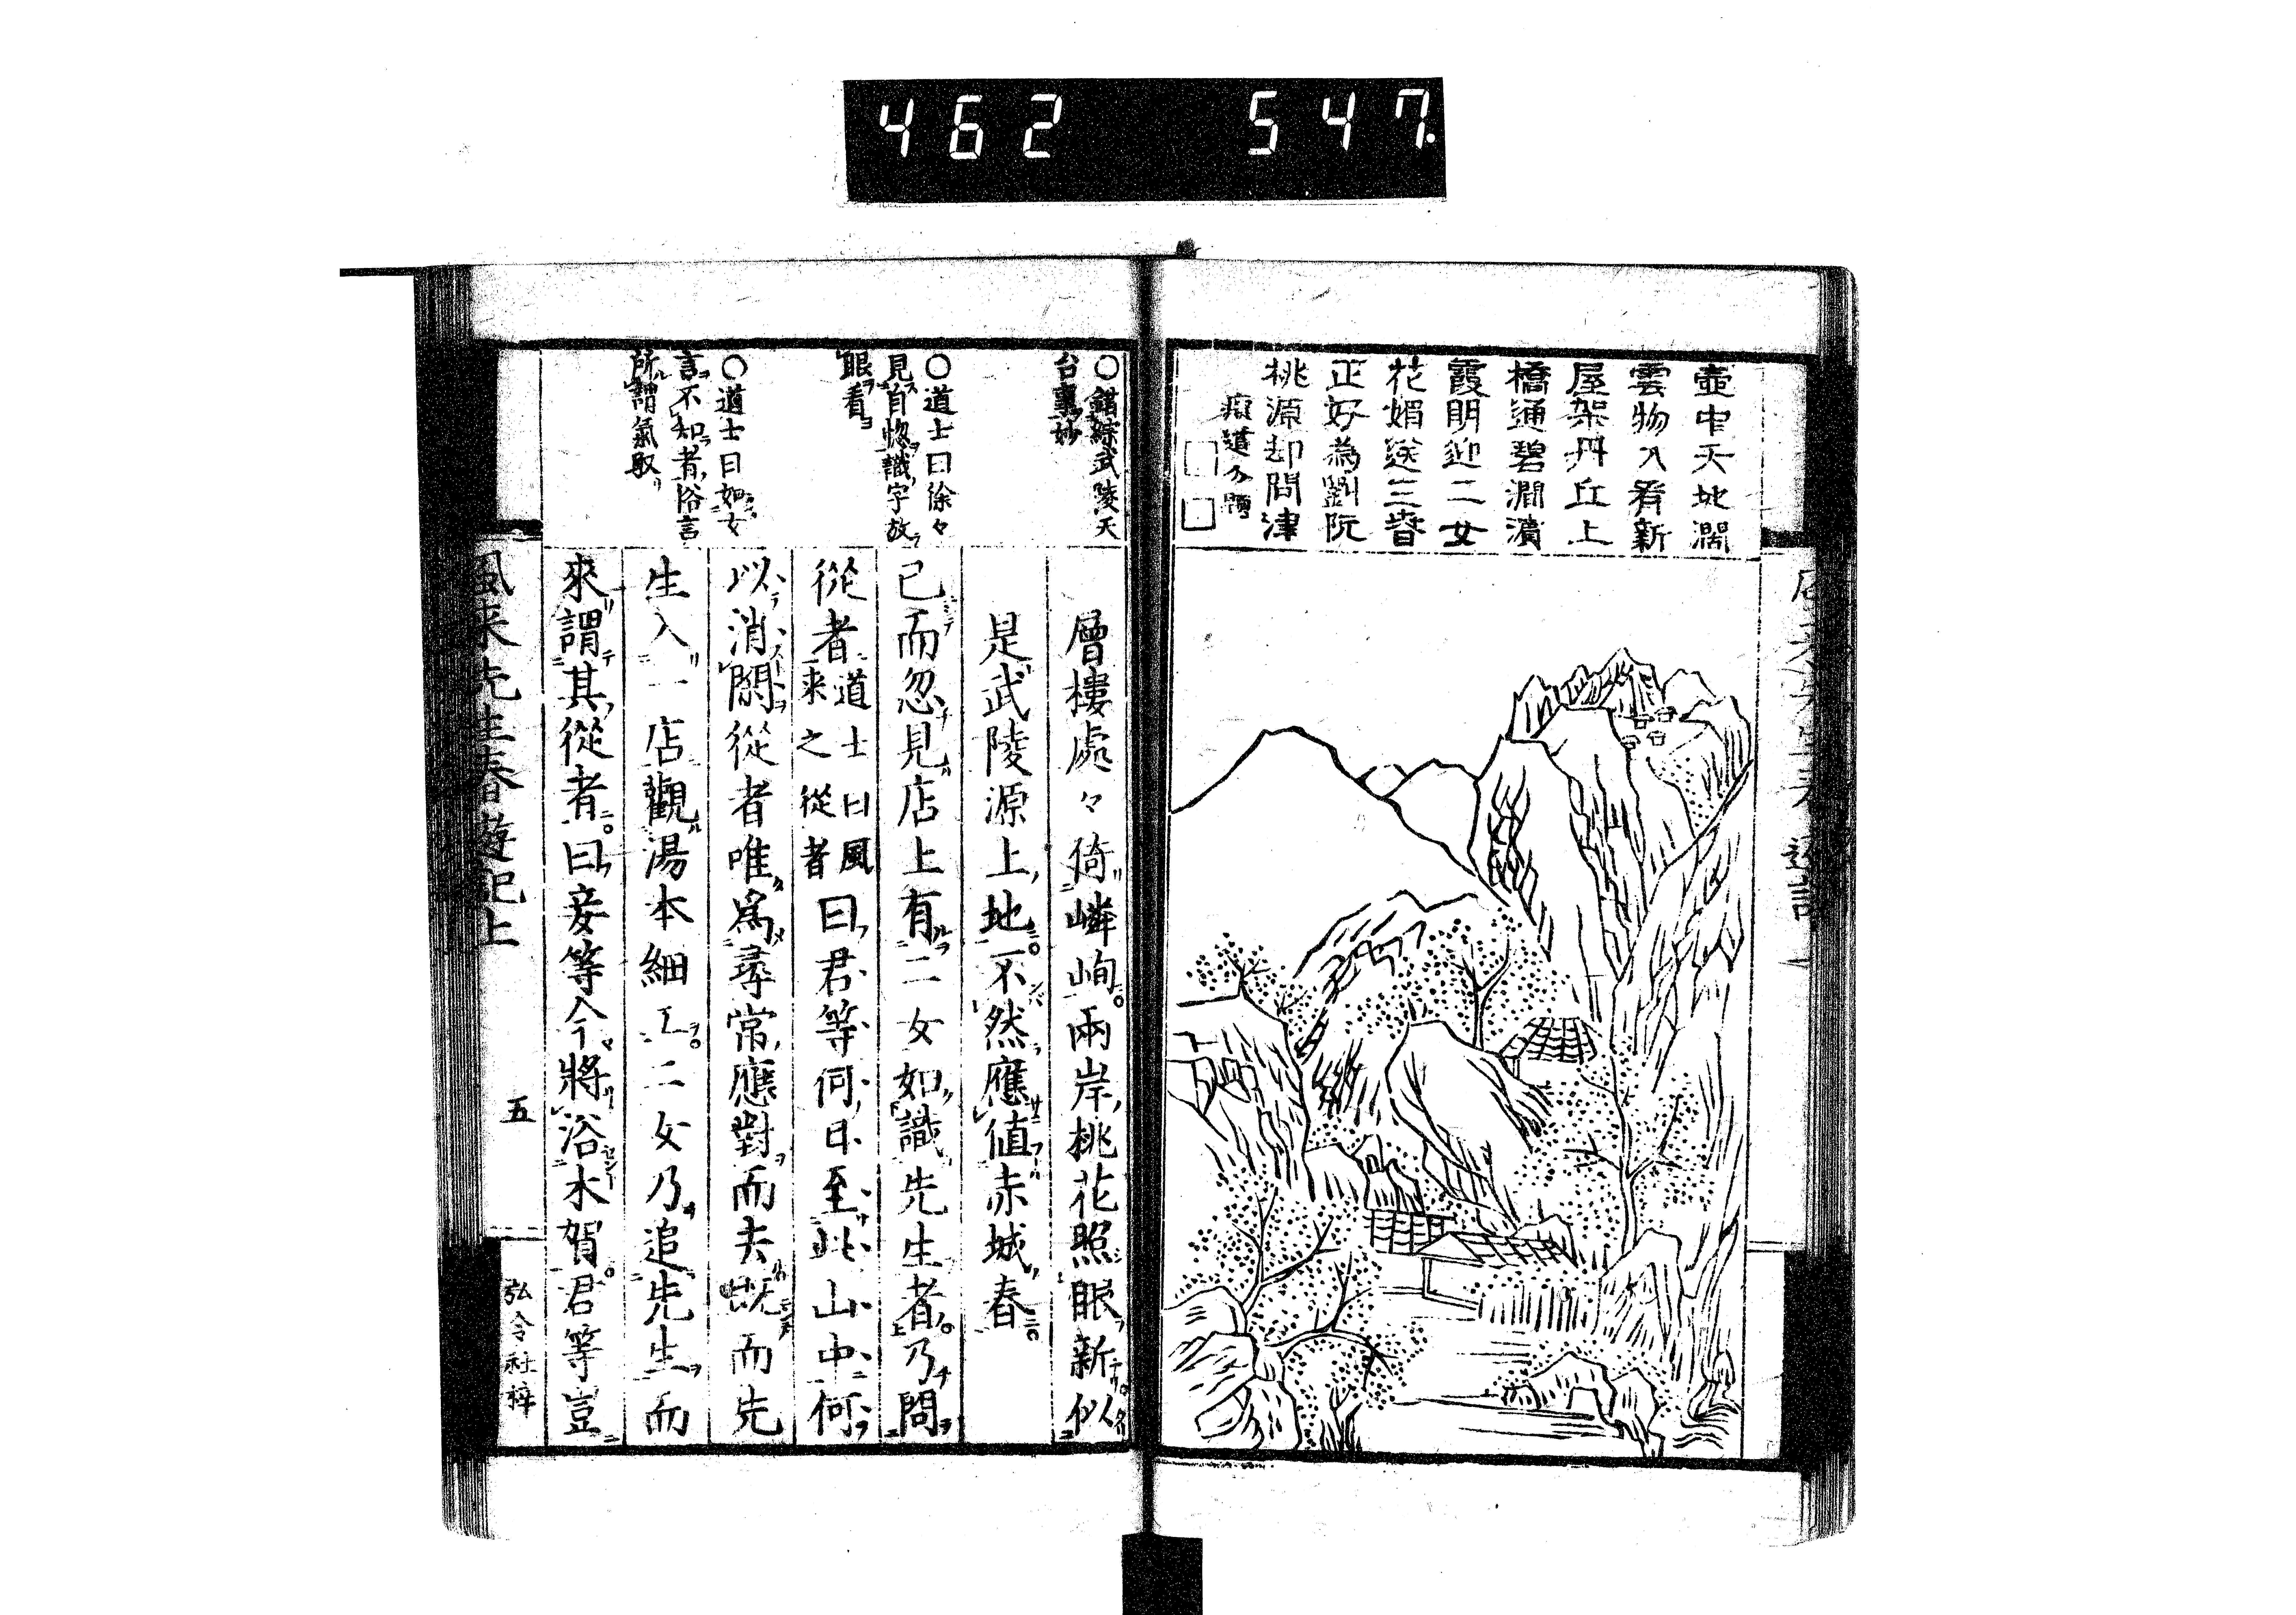 462 547.
壺中天地濶
雲物入看新
屋架丹丘上
橋通碧澗濱
霞明迎二女
花媚送三春
正好為劉阮
桃源却問津
○錯綜武陵天
台事妙
○道士曰徐々
見首惣識字放
眼看
○道士曰如女
言不知者俗言
所謂氣取
層樓處々倚嶙峋兩岸桃花照眼新似
是武陵源上地不然應値赤城春
已而忽見店上有二女如識先生者乃問
從者道士曰風
来之從者曰君等何日至此山中何
以消閑從者唯爲尋常應對而去既而先
生入一店觀湯本細工二女乃追先生而
來謂其從者曰妾等今將浴木賀君等豈
風来先生春遊記上
五
弘令社梓